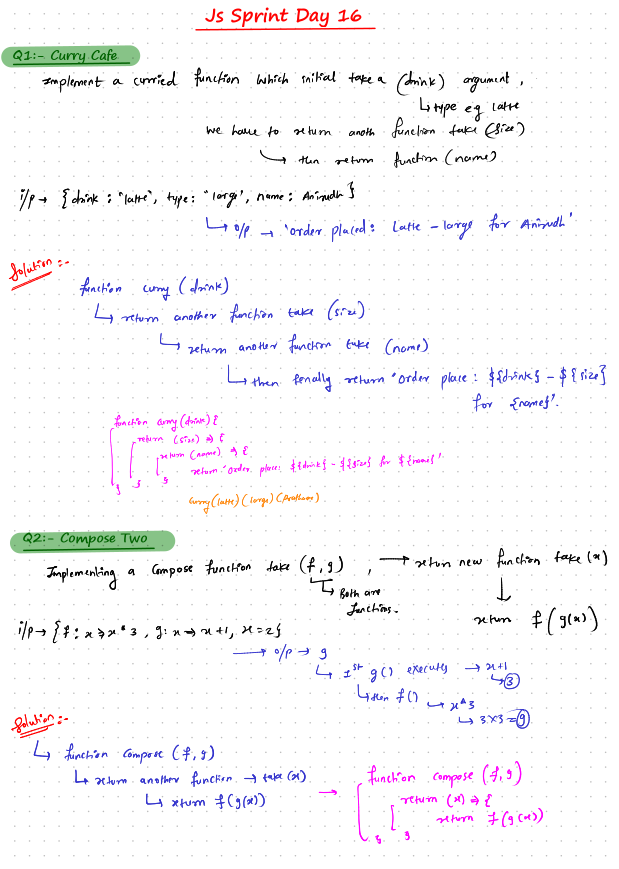 Js Sprint Day 16
Q1:- Curry Cafe
Implement a curried function which initial take a (drink) argument,
↳ type eg latte
we have to return anoth function take (size)
↳ then return function (name)
i/p → {drink : "latte", type: "large", name: Anirudh}
↳ o/p → 'order placed: Latte - large for Anirudh'
Solution :-
function curry (drink)
↳ return another function take (size)
↳ return another function take (name)
↳ then finally return "order place : ${drink} - ${size}
for {name}'.
function curry (drink) {
return (size) => {
return (name) => {
return 'order place: ${drink} - ${size} for ${name}'
}
}
}
curry (latte) (large) (Pratham)
Q2:- Compose Two
Implementing a compose function take (f, g) , → return new function take (x)
↳ Both are
functions.
↓
return f(g(x))
i/p → {f : x => x * 3 , g: x => x + 1, x = 2}
→ o/p → 9
↳ 1st g() executes → x+1
↳ 3
↳ then f() ↳ x * 3
↳ 3 x 3 = 9
Solution :-
↳ function compose (f, g)
↳ return another function → take (x)
↳ return f(g(x))
→
function compose (f, g)
return (x) => {
return f(g(x))
}
}